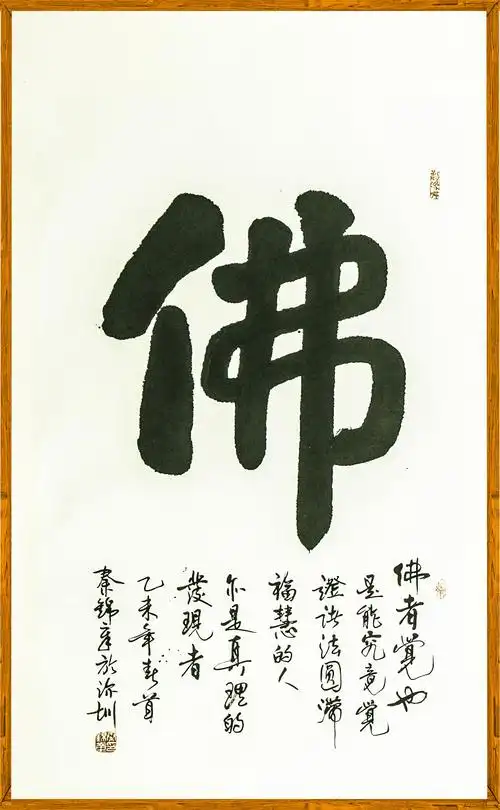 佛
佛者覺也
是能究竟覺
證诸法圓滿
福慧的人
亦是真理的
發現者
乙未年春首
秦錦章於深圳